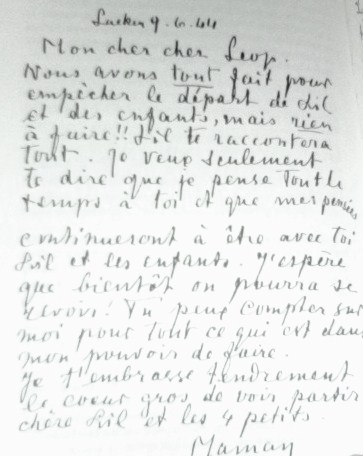 Laeken 9.6.44
Mon cher cher Leop.
Nous avons tout fait pour
empêcher le départ de Lil
et des enfants, mais rien
à faire!! Lil te racontera
tout. Je veux seulement
te dire que je pense tout le
temps à toi et que mes pensées
continueront à être avec toi
Lil et les enfants. J'espère
que bientôt on pourra se
revoir! Tu peux compter sur
moi pour tout ce qui est dans
mon pouvoir de faire.
Je t'embrasse tendrement
le coeur gros de voir partir
chère Lil et les 4 petits.
Maman